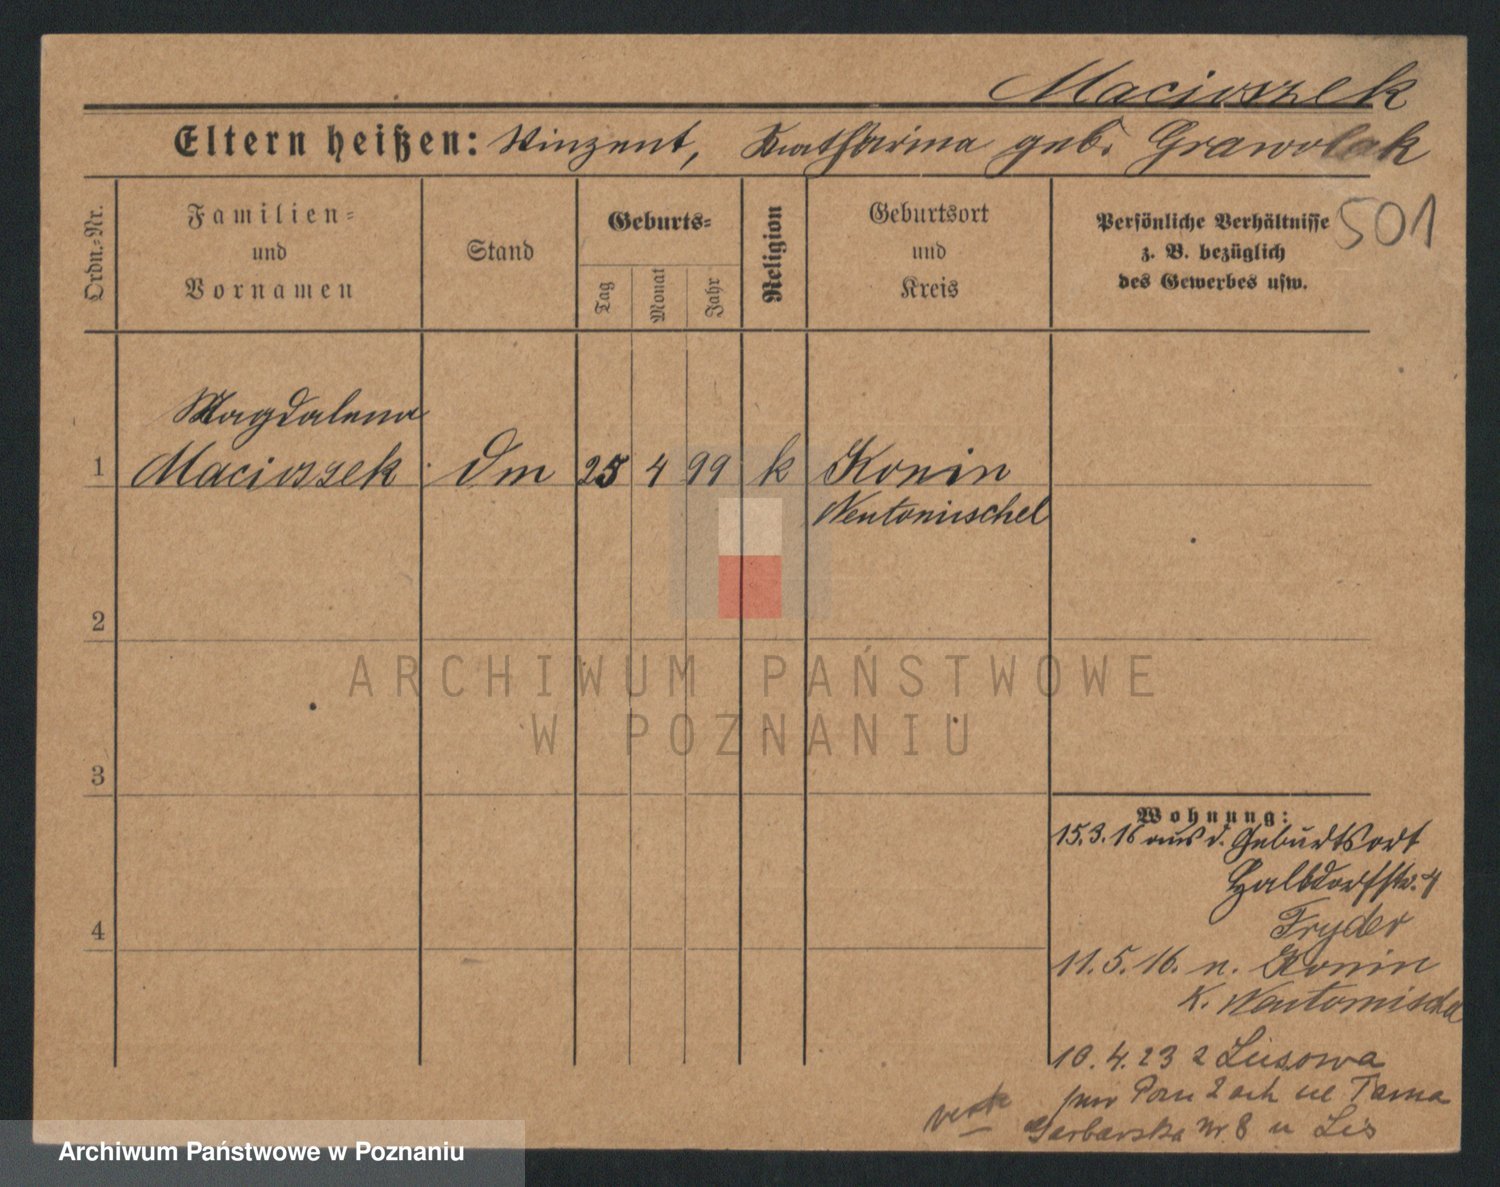 Macioszek
Eltern heißen: Vinzent, Katharina geb. Grawolak
Ordn.-Nr.
Familien-
und
Vornamen
Stand
Geburts-
Tag
Monat
Jahr
Religion
Geburtsort
und
Kreis
Persönliche Verhältnisse
z. B. bezüglich
des Gewerbes usw.
501
Magdalena
1 Macioszek Dm 25 4 99 k Konin
Neutomischel
2
ARCHIWUM PAŃSTWOWE
W POZNANIU
3
Wohnung:
15.3.16 aus d. Geburtsort
Halbdorfstr. 4
Fryder
4
11.5.16. n. Konin
K. Neutomischel
10.4.23 z Lusowa
pow Pozn Zach ul Tama
Garbarska Nr. 8 u Lis
Archiwum Państwowe w Poznaniu